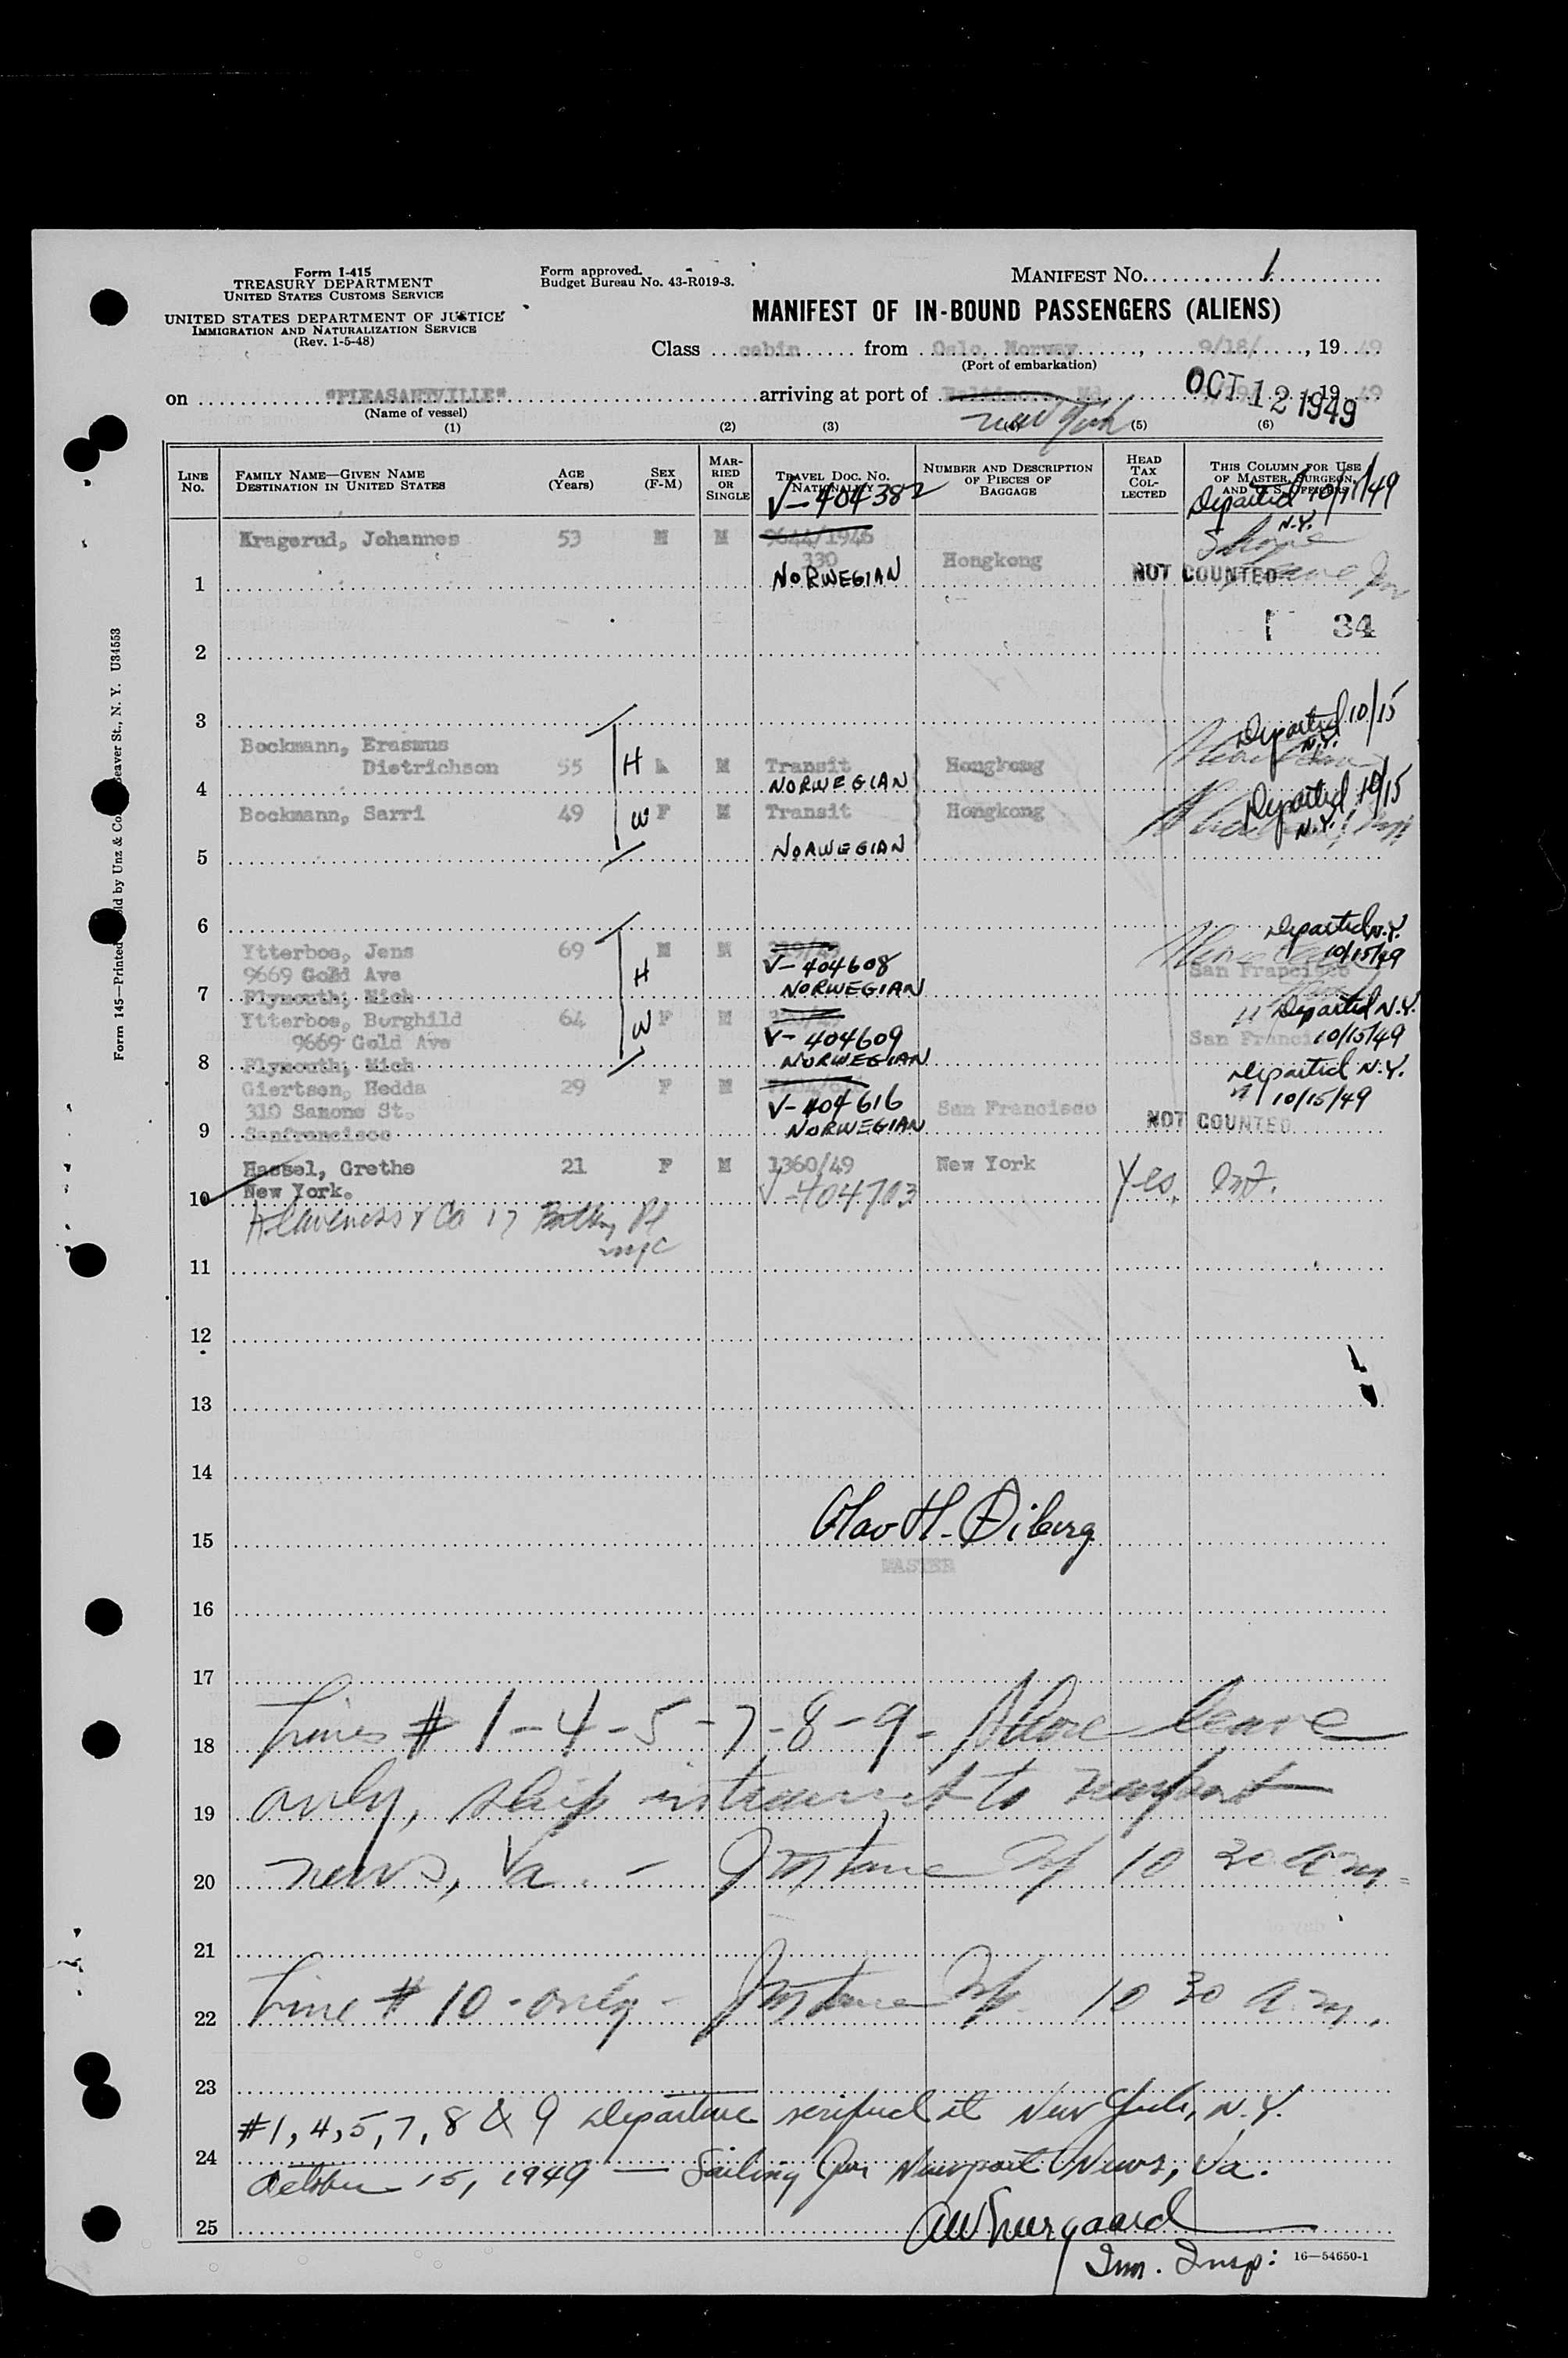 Form I-415
TREASURY DEPARTMENT
UNITED STATES CUSTOMS SERVICE
UNITED STATES DEPARTMENT OF JUSTICE
IMMIGRATION AND NATURALIZATION SERVICE
(Rev. 1-5-48)
Form approved.
Budget Bureau No. 43-R019-3.
MANIFEST NO. 1
MANIFEST OF IN-BOUND PASSENGERS (ALIENS)
Class cabin from Oslo, Norway, 9/18/, 1949
(Port of embarkation)
on "PLEASANTVILLE" arriving at port of Baltimore, Md. 1949
New York
OCT 12 1949
(Name of vessel)
(1) (2) (3) (5) (6)
LINE NO. FAMILY NAME—GIVEN NAME DESTINATION IN UNITED STATES AGE (Years) SEX (F-M) MARRIED OR SINGLE TRAVEL DOC. NO. NATIONALITY NUMBER AND DESCRIPTION OF PIECES OF BAGGAGE HEAD TAX COLLECTED THIS COLUMN FOR USE OF MASTER, SURGEON, AND U. S. OFFICERS
V-404382 Departed 10/15/49
N.Y.
Kragerud, Johannes 53 M M 9644/1946
330 Hongkong
1 NORWEGIAN NOT COUNTED
34
2
3
Departed 10/15
N.Y.
Bockmann, Erasmus
Dietrichson 55 H M Transit Hongkong
4 NORWEGIAN
Departed 10/15
N.Y.
Bockmann, Sarri 49 W F M Transit Hongkong
5 NORWEGIAN
6
Departed N.Y.
10/15/49
Ytterbos, Jens 69 M M
9669 Gold Ave H V-404608 San Francisco
7 Plymouth, Mich NORWEGIAN
Departed N.Y.
Ytterbos, Borghild 64 W F M
9669 Gold Ave V-404609 San Franci 10/15/49
8 Plymouth, Mich NORWEGIAN
Departed N.Y.
10/15/49
Giertsen, Hedda 29 F M
310 Samone St. V-404616 San Francisco
9 Sanfrancisco NORWEGIAN NOT COUNTED
Hassel, Grethe 21 F M 1360/49 New York Yes.
10 New York. V-404703
& Co 17 Battery Pl
nyc
11
12
13
14
Olav H. Öiberg
15
MASTER
16
17
18 Lines # 1-4-5-7-8-9- Shore leave
19 only, ship intransit to newport
20 news, Va. - 10 30 a.m.
21
22 Line # 10 - only - 10 30 a.m.
23
#1, 4, 5, 7, 8 & 9 Departure verified at New York, N.Y.
24
October 15, 1949 — Sailing for Newport News, Va.
25
Imm. Insp:
16—54650-1
Form 145—Printed
ld by Unz & Co
eaver St., N. Y. U34553